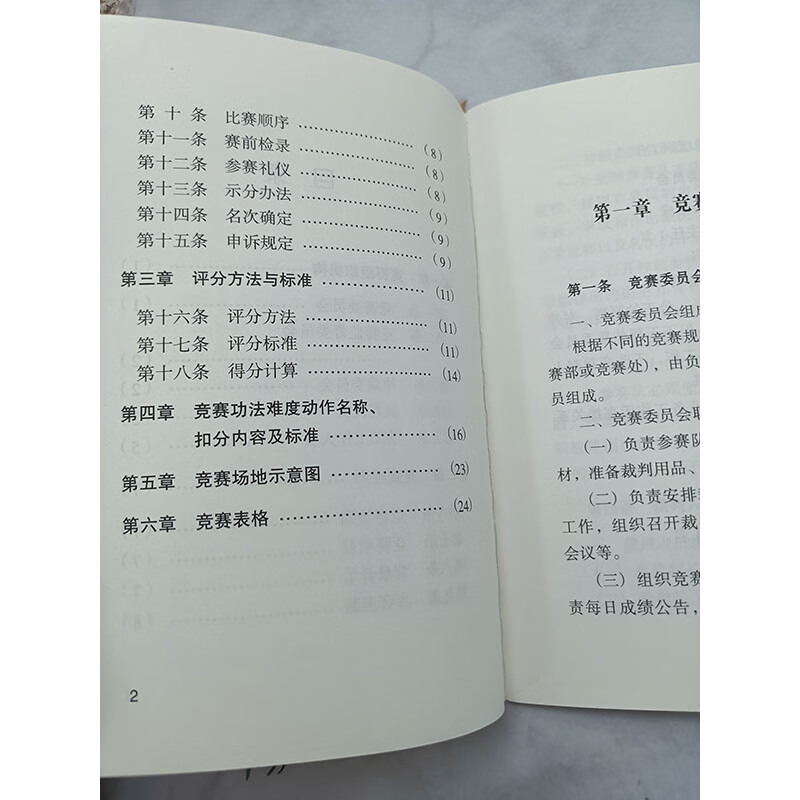 第十条 比赛顺序 ……………… (8)
第十一条 赛前检录 ……………… (8)
第十二条 参赛礼仪 ……………… (8)
第十三条 示分办法 ……………… (9)
第十四条 名次确定 ……………… (9)
第十五条 申诉规定 ……………… (9)
第三章 评分方法与标准 ……………… (11)
第十六条 评分方法 ……………… (11)
第十七条 评分标准 ……………… (11)
第十八条 得分计算 ……………… (14)
第四章 竞赛功法难度动作名称、
扣分内容及标准 ……………… (16)
第五章 竞赛场地示意图 ……………… (23)
第六章 竞赛表格 ……………… (24)
2
第一章 竞
第一条 竞赛委员会
一、竞赛委员会组成
根据不同的竞赛规
赛部或竞赛处),由负
员组成。
二、竞赛委员会职
(一)负责参赛队
材,准备裁判用品、
(二)负责安排
工作,组织召开裁
会议等。
(三)组织竞赛
责每日成绩公告,